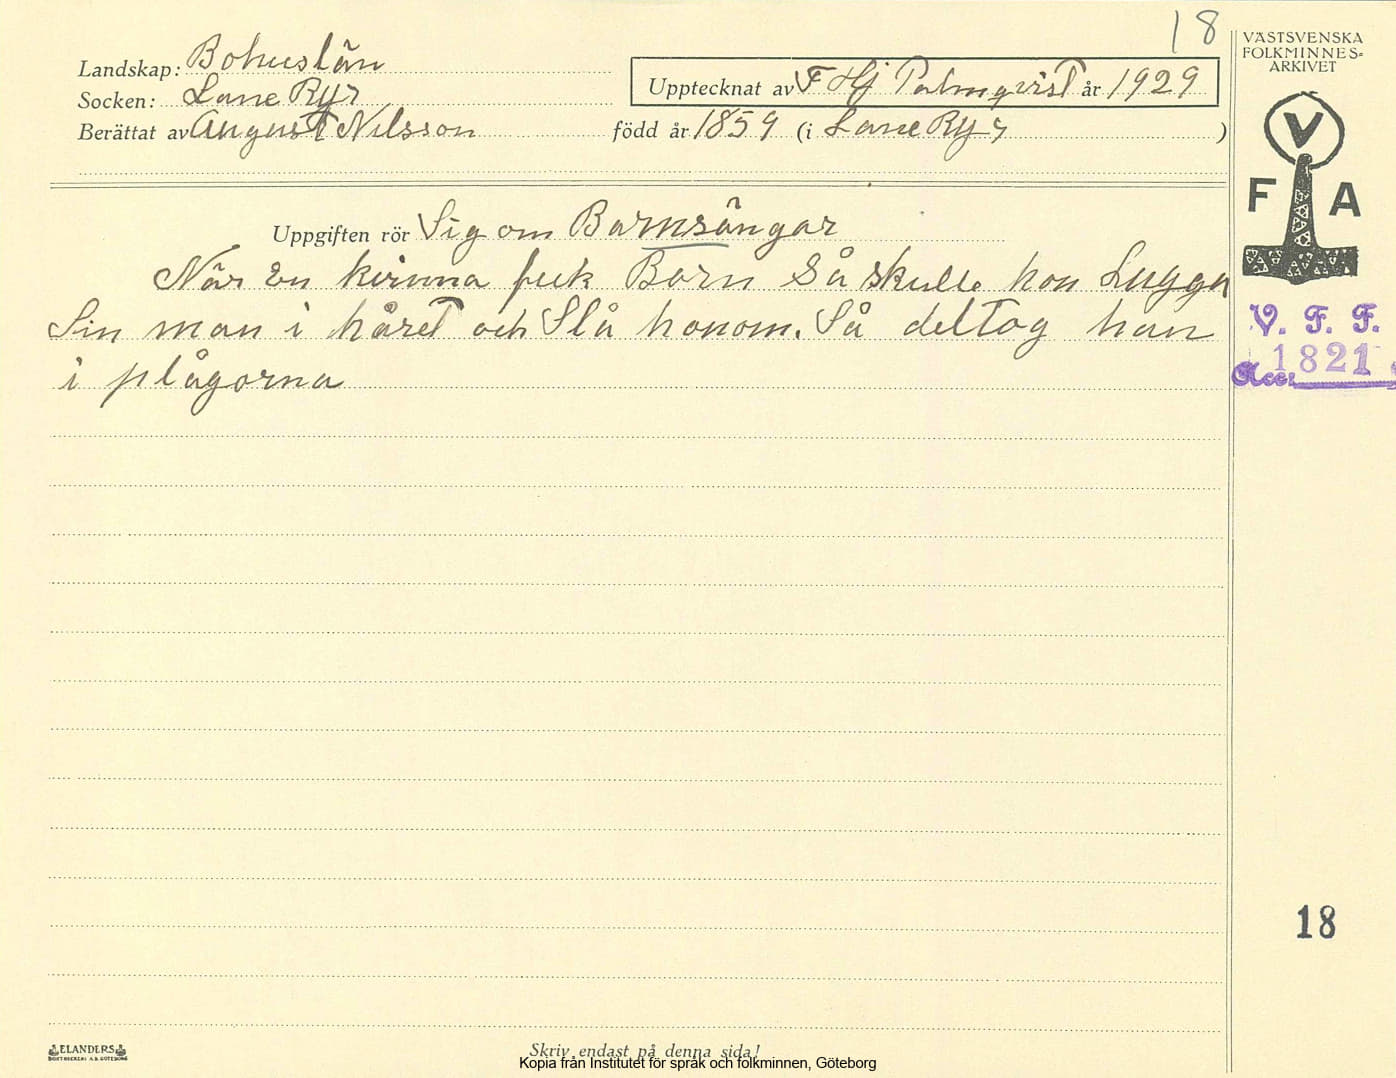 18
VÄSTSVENSKA
FOLKMINNES=
ARKIVET
Landskap: Bohuslän
Socken: Lane Ryr
Upptecknat av F Hj Palmqvist år 1929
Berättat av August Nilsson född år 1859 (i Lane Ryr )
V
F A
Uppgiften rör Sig om Barnsängar
När En kvinna fick Barn Så skulle hon Lugga
Sin man i håret och Slå honom. Så deltog han
i plågorna
V. F. F.
Acc. 1821
18
ELANDERS
BOKTRYCKERI A.B. GÖTEBORG
Skriv endast på denna sida!
Kopia från Institutet för språk och folkminnen, Göteborg